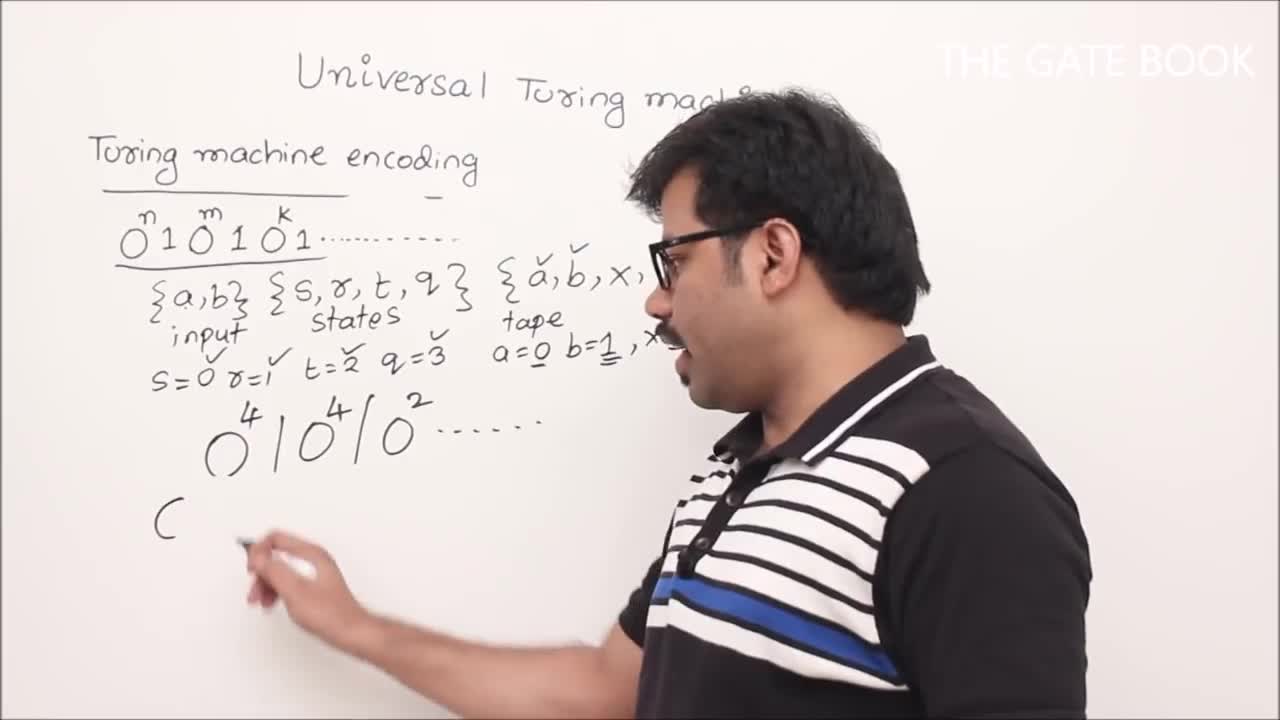 THE GATE BOOK
Universal Turing
Turing machine encoding
0ⁿ 1 0ᵐ 1 0ᵏ 1 ..............
{a,b} {s, r, t, q} {a, b, x,
input states tape
s=0 r=1 t=2 q=3 a=0 b=1, x
0⁴ | 0⁴ | 0² ......
(